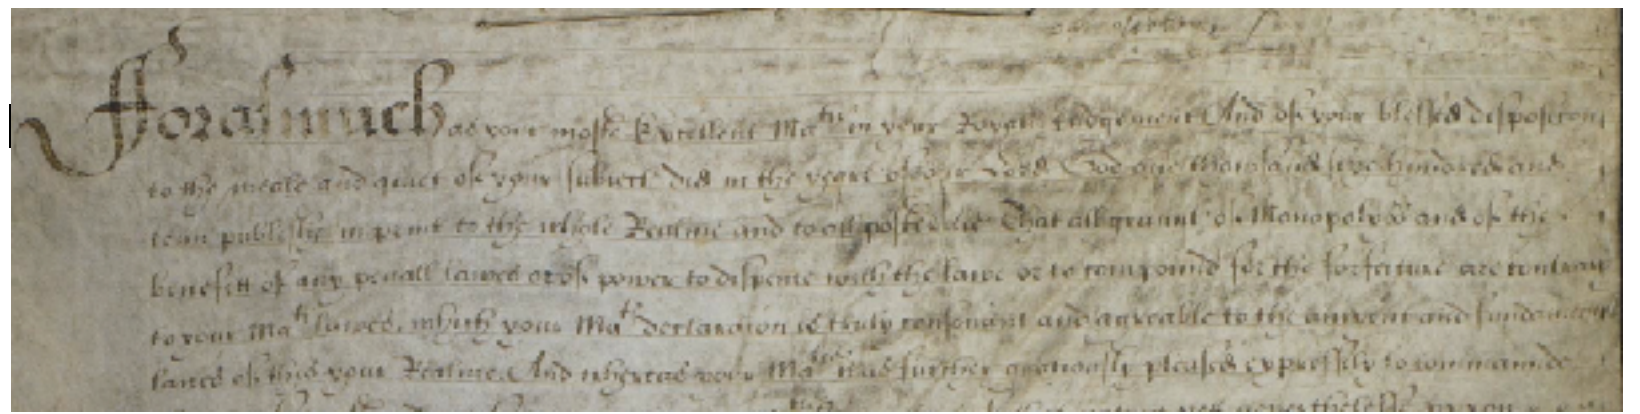 Forasmuch as your moste Excellent Ma^tie in your Royall Judgement And of your blessed disposicon
to the weale and quiet of your subiects did in the yeare of our Lord God one thousand six hundred and
tenn publishe in print to the whole Realme and to all posteritie That all graunts of Monopolyes and of the
benefitt of any penall lawes or of power to dispence with the lawe or to compound for the forfeiture are contrary
to your Ma^ts lawes, which your Ma^ts declaracion is truly consonant and agreable to the auncient and fundamentall
lawes of this your Realme. And whereas your Ma^tie was further graciously pleased expressely to commaunde